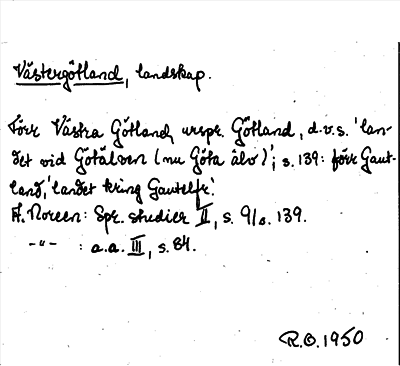 Västergötland, landskap.
Förr Västra Götland, urspr. Götland, d.v.s. 'lan-
det vid Götälven (nu Göta älv)'; s. 139: förr Gaut-
land, 'landet kring Gautelfr.'
A. Noreen: Spr. studier II, s. 91 o. 139.
-"- : a.a. III, s. 84.
R.O. 1950